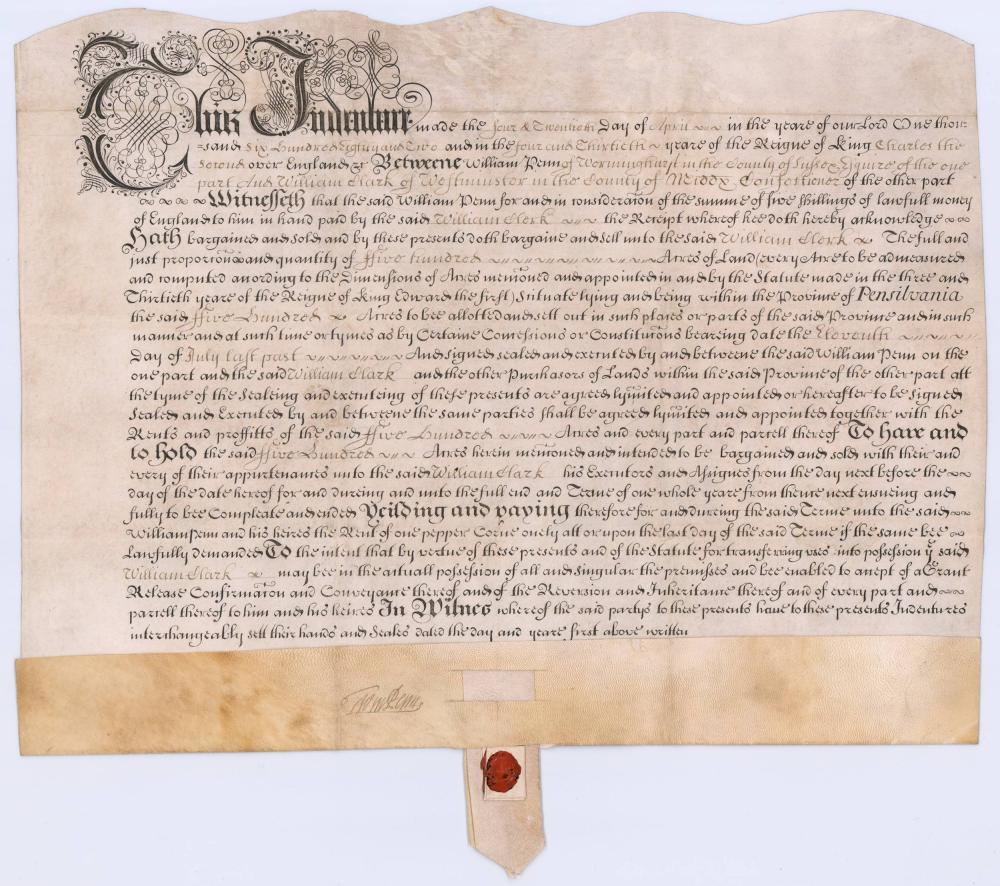 This Indenture made the four & Twentieth Day of April in the yeare of our Lord One thou=
=sand Six Hundred Eighty and Two and in the four and Thirtieth yeare of the Reigne of King Charles the
Second over England &c Betweene William Penn of Worminghurst in the County of Sussex Esquire of the one
part And William Clark of Westminster in the County of Middx Confectioner of the other part
Witnesseth that the said William Penn for and in consideration of the summe of five shillings of lawfull money
of England to him in hand paid by the said William Clerk the Receipt whereof hee doth hereby acknowledge
Hath bargained and sold and by these presents doth bargaine and sell unto the said William Clerk The full and
just proporcon and quantity of ffive hundred Acres of Land (every Acre to be admeasured
and computed according to the Dimensions of Acres menconed and appointed in and by the Statute made in the three and
Thirtieth yeare of the Reigne of King Edward the first) Situate lying and being within the Province of Pensilvania
the said ffive Hundred Acres to bee allotted and sett out in such places or parts of the said Province and in such
manner and at such time or tymes as by Certaine Concessions or Constitucons beareing date the Eleventh
day of July last past And signed sealed and executed by and betweene the said William Penn on the
one part and the said William Clark and the other Purchasors of Lands within the said Province of the other part att
the tyme of the Sealeing and executeing of these presents are agreed lymited and appointed or hereafter to be Signed
Sealed and Executed by and betweene the same parties shall be agreed lymited and appointed together with the
Rents and proffitts of the said ffive Hundred Acres and every part and parcell thereof To have and
to hold the said ffive Hundred Acres herein menconed and intended to be bargained and sold with their and
every of their appurtenances unto the said William Clark his Executors and Assignes from the day next before the
day of the date hereof for and dureing and unto the full end and Terme of one whole yeare from thence next ensueing and
fully to bee Compleate and ended Yeilding and paying therefore for and dureing the said Terme unto the said
William Penn and his heires the Rent of one pepper Corne onely att or upon the last day of the said Terme if the same bee
Lawfully demanded To the intent that by vertue of these presents and of the Statute for transferring uses into possession ye said
William Clark may bee in the actuall possession of all and singular the premisses and bee enabled to accept of a Grant
Release Confirmacon and Conveyance thereof and of the Reversion and Inheritance thereof and of every part and
parcell thereof to him and his heires In Witnes whereof the said partys to these presents have to these presents Indentures
interchangeably sett their hands and Seales dated the day and yeare first above written
Wm Penn